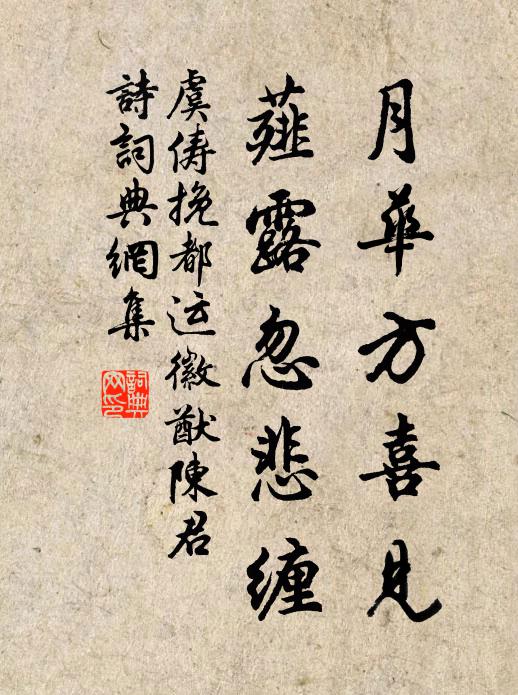 月華方喜見
薤露忽悲纏
虞儔挽都运徽猷陳君
詩詞典網集
詞典
网印